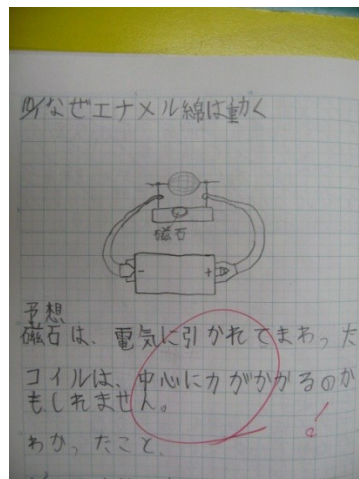 10/1なぜエナメル綿は動く
磁石
- +
予想
磁石は、電気に引かれてまわった
コイルは、中心に力がかかるのか
もしれません。
わかったこと、